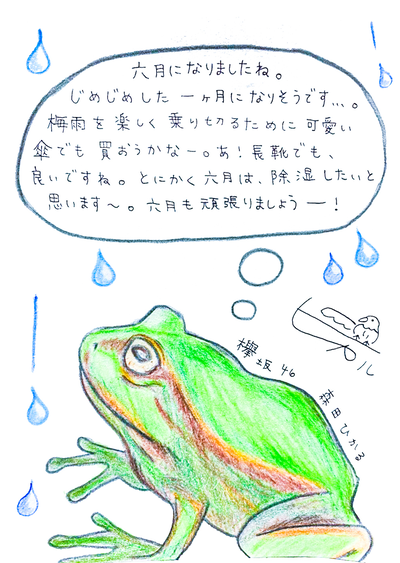 六月になりましたね。
じめじめした一ヶ月になりそうです...。
梅雨を楽しく乗り切るために可愛い
傘でも買おうかなー。あ!長靴でも、
良いですね。とにかく六月は、除湿したいと
思います〜。六月も頑張りましょうー!
欅坂46
森田ひかる
ル